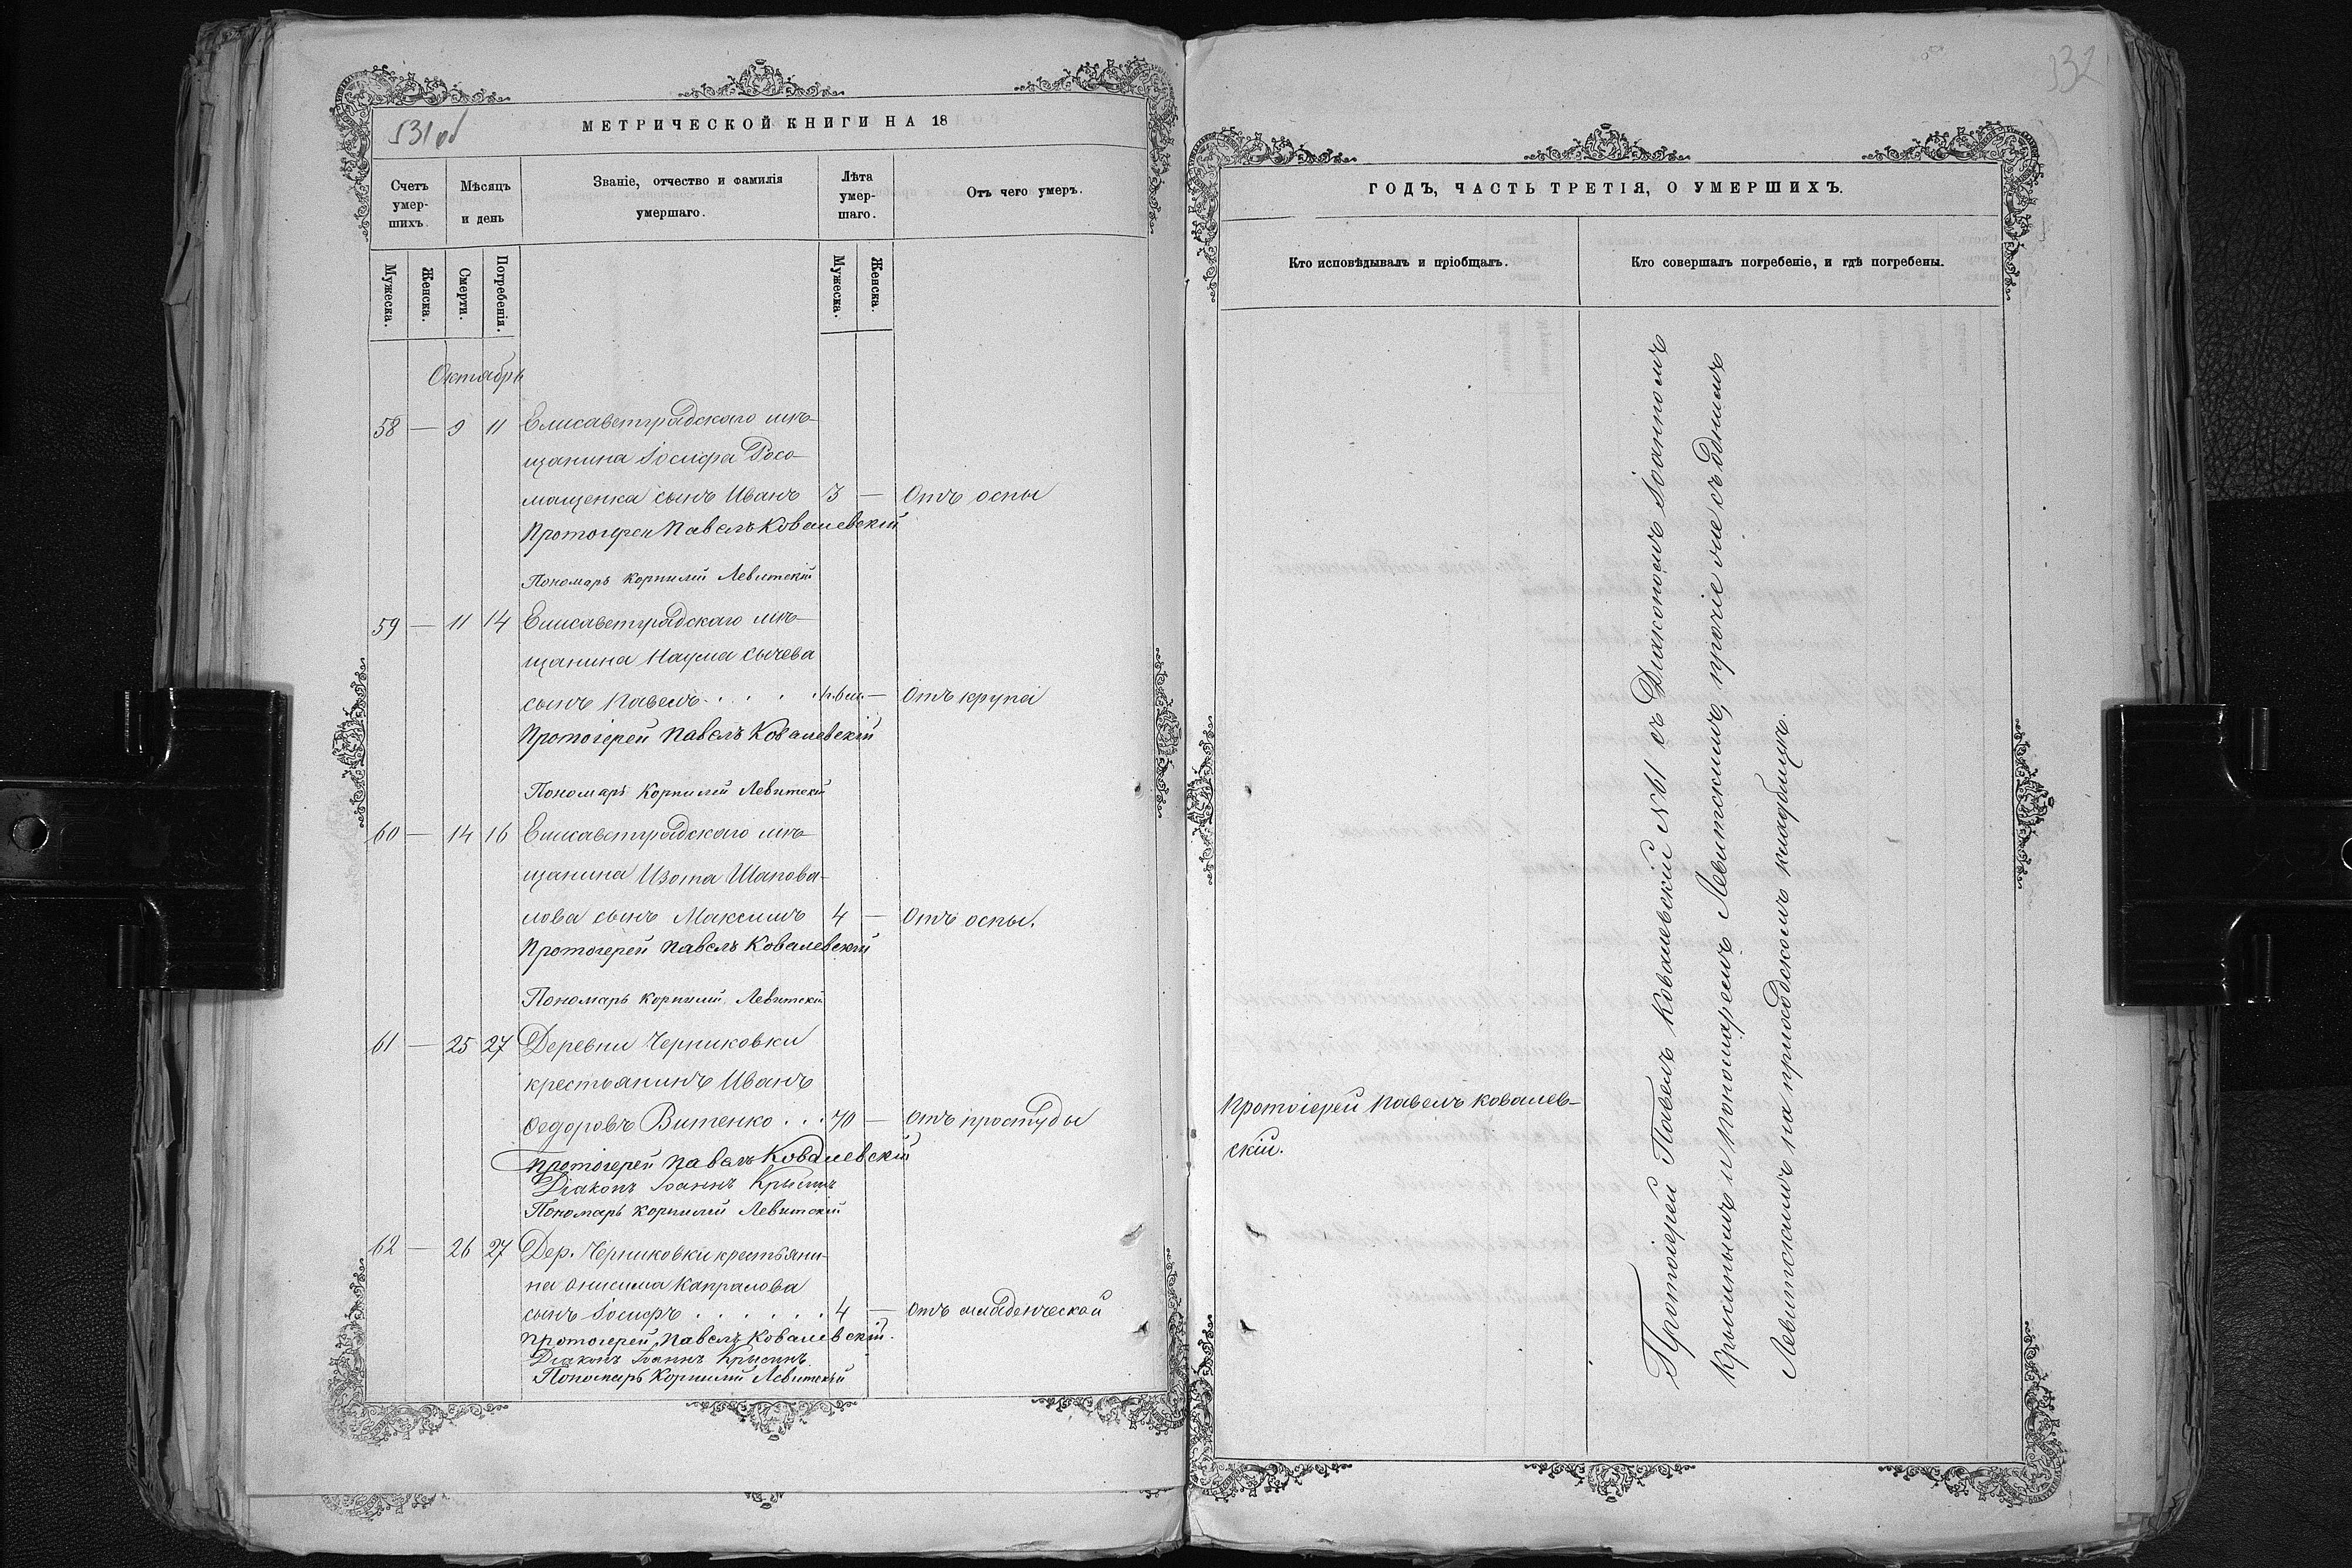 531 об
МЕТРИЧЕСКОЙ КНИГИ НА 18
Счетъ умер-шихъ.
Мѣсяцъ и день
Званіе, отчество и фамилія умершаго.
Лѣта умер-шаго.
Отъ чего умеръ.
Мужеска.
Женска.
Смерти.
Погребенія.
Мужеска.
Женска.
Октябрь
58 — 9 11 Елисаветградскаго мѣ-
щанина Іосифа Росо-
мащенка сынъ Иванъ 3 — Отъ оспы
Протоіерей Павелъ Ковалевскій
Пономарь Корнилій Левитскій
59 — 11 14 Елисаветградскаго мѣ-
щанина Наума Сычева
сынъ Павелъ . . . . — Отъ крупа
Протоіерей Павелъ Ковалевскій
Пономарь Корнилій Левитскій
60 — 14 16 Елисаветградскаго мѣ-
щанина Изота Шапова-
лова сынъ Максимъ 4 — Отъ оспы.
Протоіерей Павелъ Ковалевскій
Пономарь Корнилій Левитскій
61 — 25 27 Деревни Черниковки
крестьянинъ Иванъ
Федоровъ Витенко . . . 70 — Отъ простуды
Протоіерей Павелъ Ковалевскій
Діаконъ Іоаннъ Крысинъ
Пономарь Корнилій Левитскій
62 — 26 27 Дер. Черниковки крестьяни-
на Онисима Капралова
сынъ Іосифъ . . . . . . . 4 — Отъ младенческой
Протоіерей Павелъ Ковалевскій.
Діаконъ Іоаннъ Крысинъ
Пономарь Корнилій Левитскій
532
ГОДЪ, ЧАСТЬ ТРЕТІЯ, О УМЕРШИХЪ.
Кто исповѣдывалъ и пріобщалъ.
Кто совершалъ погребеніе, и гдѣ погребены.
Протоіерей Павелъ Ковалев-
скій.
Протоіерей Павелъ Ковалевскій № 61 съ Діакономъ Іоанномъ
Крысинымъ и Пономаремъ Левитскимъ, прочіе же съ однимъ
Левитскимъ на приходскомъ кладбищѣ.